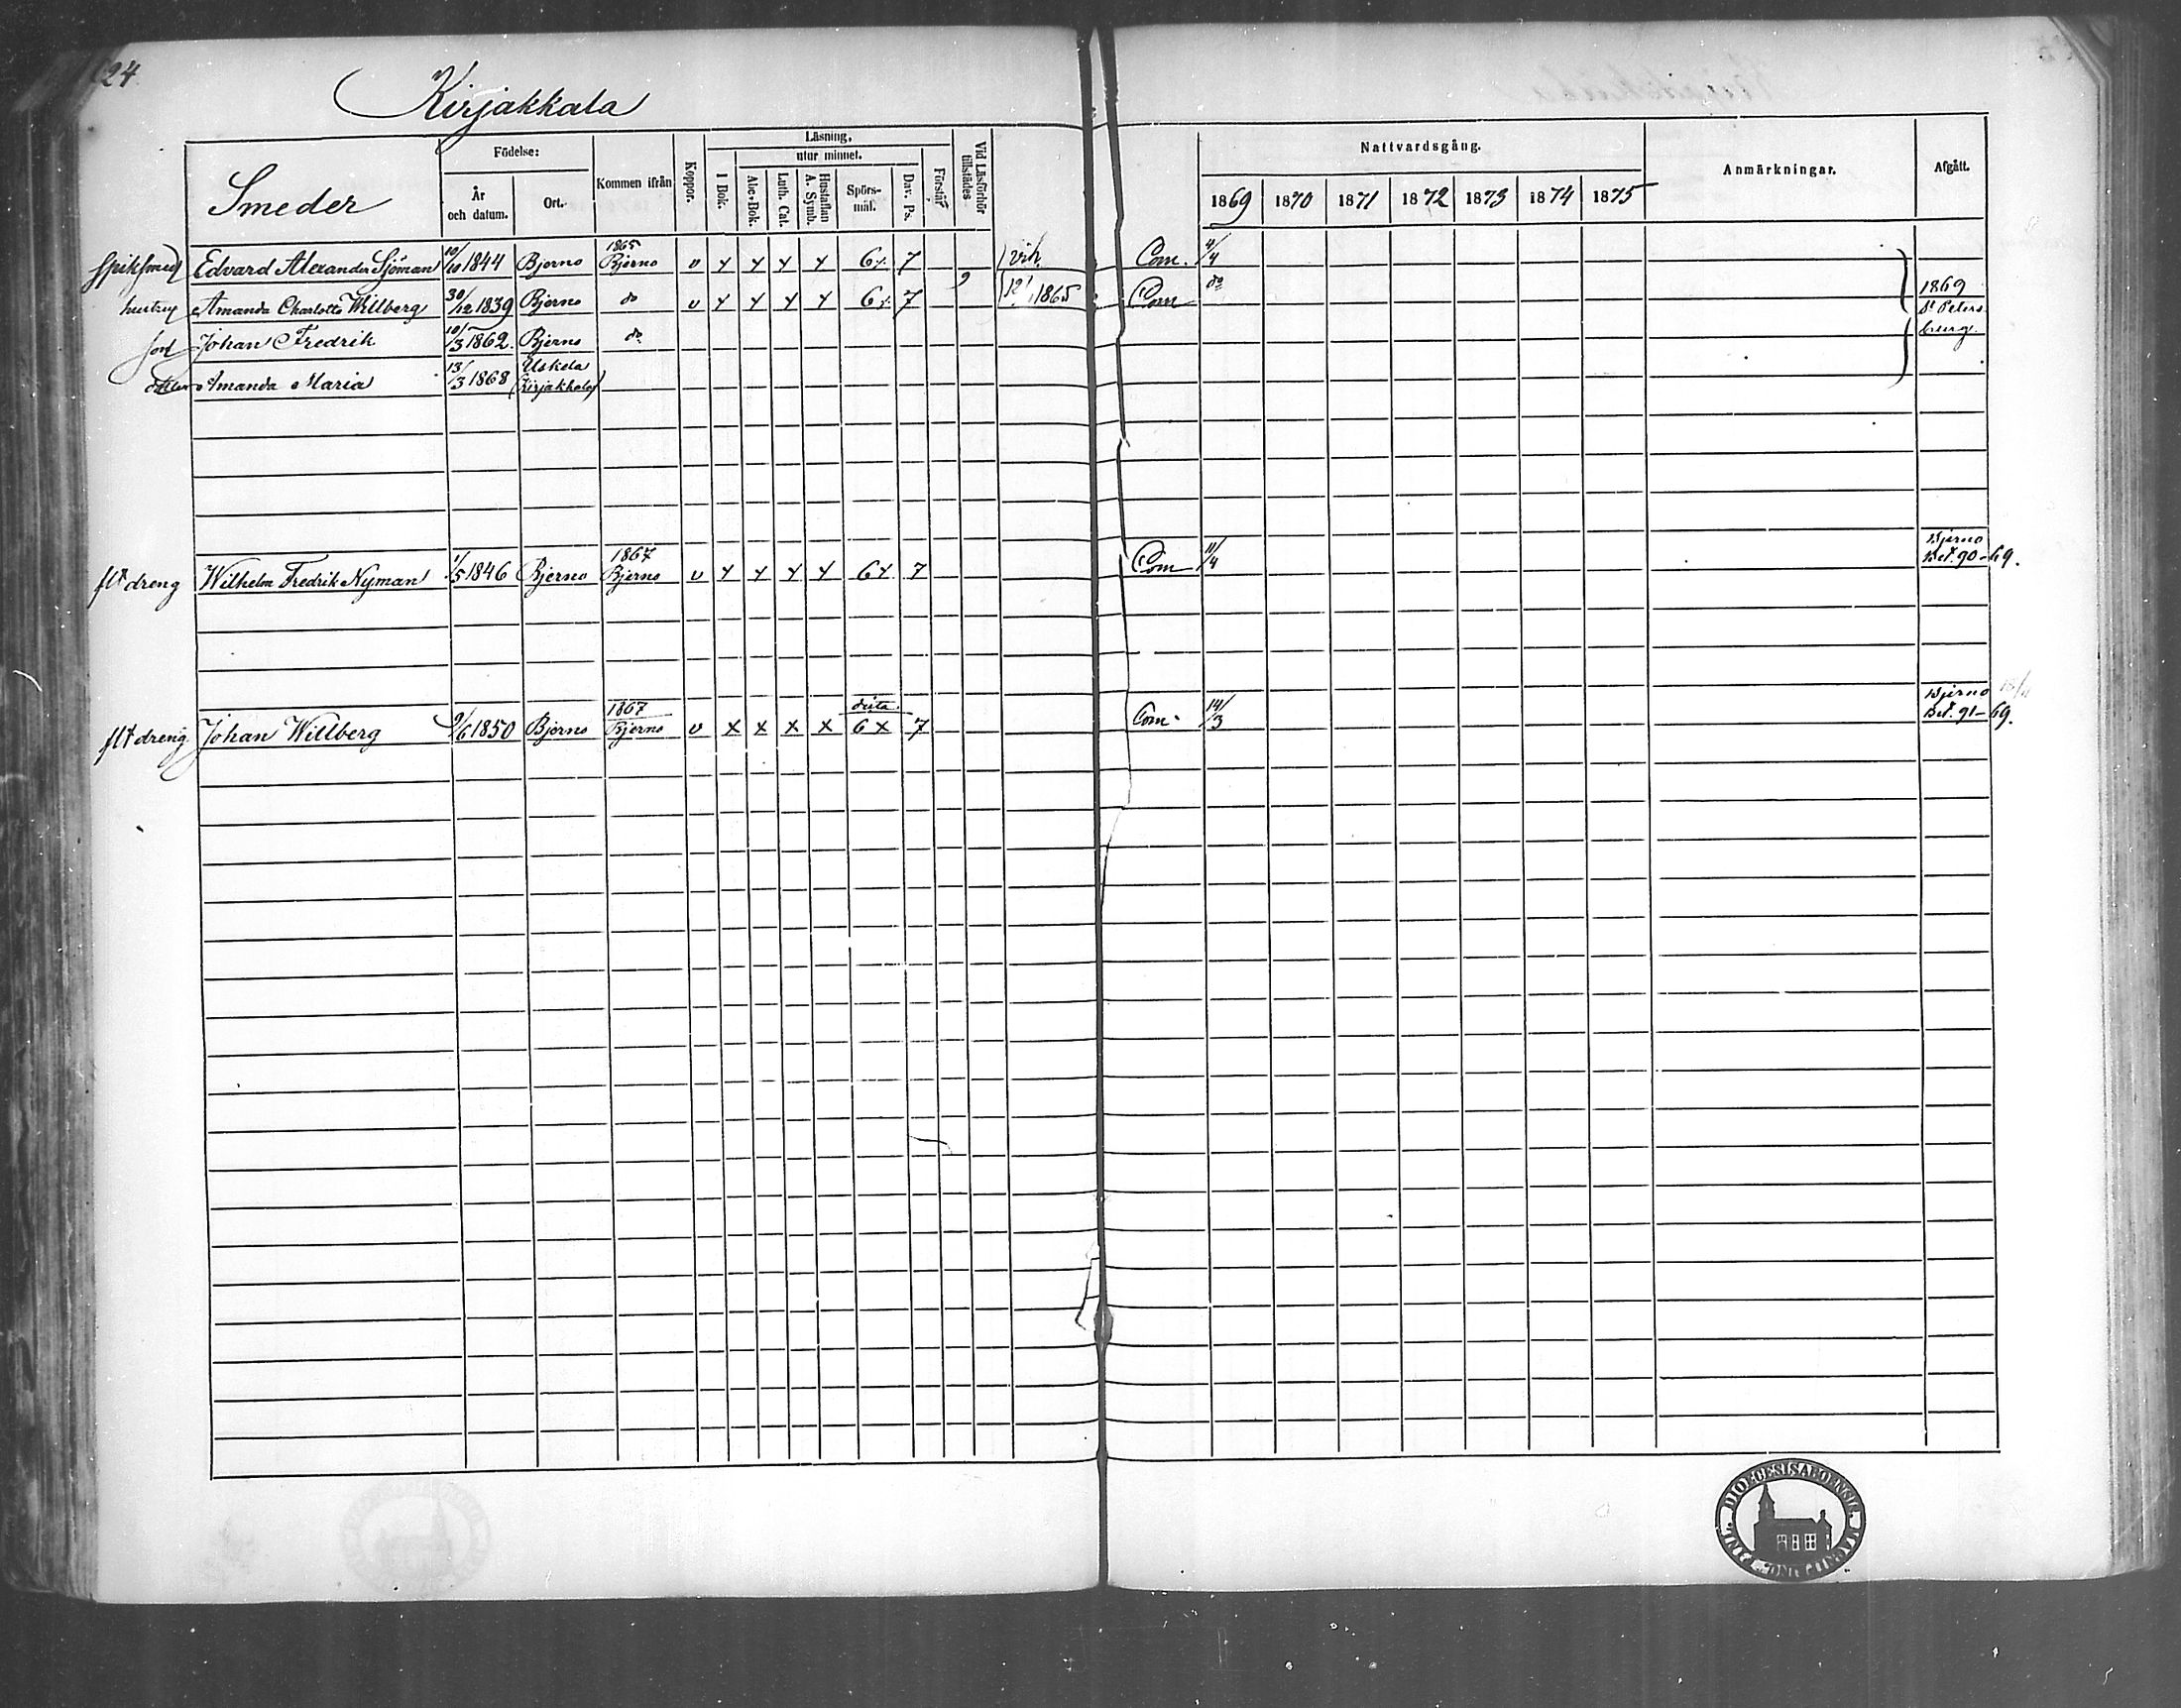 24
Kirjakkala
Smeder
Födelse:
År och datum.
Ort.
Kommen ifrån
Koppor.
Läsning,
utur minnet.
I Bok.
Abc-Bok.
Luth. Cat.
Hustaflan A. Symb.
Spörsmål.
Dav. Ps.
Förstår
Vid Läsförhör tillstädes.
Nattvardsgång.
1869 1870 1871 1872 1873 1874 1875
Anmärkningar.
Afgått.
Spiksmed Edvard Alexander Sjöman 10/10 1844 Bjerno 1865 Bjerno v x x x x 6x 7 vih. Com. 4/4
hustru Amanda Charlotta Willberg 30/12 1839 Bjerno do v x x x x 6x 7 1865 Com do 1869 St Petersburg.
son Johan Fredrik 10/3 1862. Bjerno do
dotter Amanda Maria 13/3 1868 Uskela (Kirjakkala)
flt dreng Wilhelm Fredrik Nyman 1/5 1846 Bjerno 1867 Bjerno v x x x x 6x 7 Com 11/4 Bjerno Bet. 90-69.
flt dreng Johan Willberg 9/6 1850 Bjerno 1867 Bjerno v x x x x 6x 7 Com. 14/3 Bjerno Bet. 91-69.